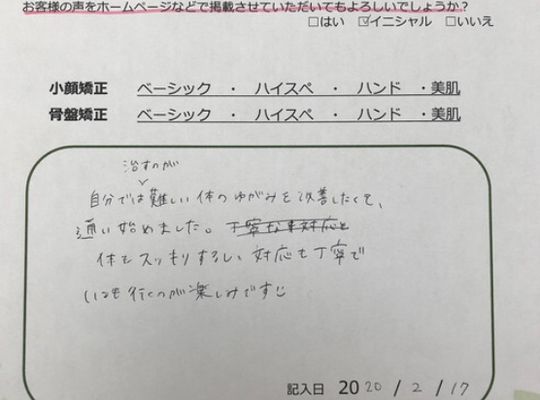 お客様の声をホームページなどで掲載させていただいてもよろしいでしょうか?
□はい ☑イニシャル □いいえ
小顔矯正 ベーシック ・ ハイスペ ・ ハンド ・美肌
骨盤矯正 ベーシック ・ ハイスペ ・ ハンド ・美肌
治すのが
自分では難しい体のゆがみを改善したくて、
通い始めました。丁寧な対応と
体もスッキリするし、対応も丁寧で
いつも行くのが楽しみです
記入日 2020 / 2 / 17